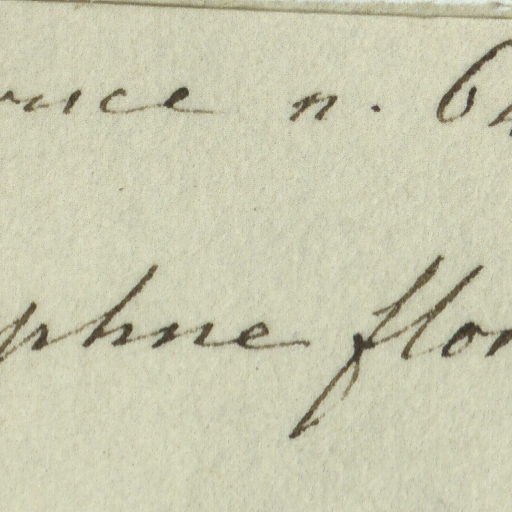 ruce n. 6
phne flor